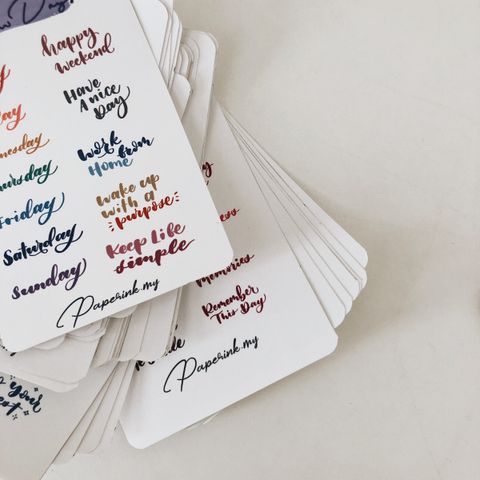 Day!
happy
weekend
Have
A nice
Day
Work
from
Home
wake up
with a
purpose
Keep Life
simple
nesday
ursday
Friday
Saturday
Sunday
Paperink.my
Memories
Remember
This Day
Paperink.my
your